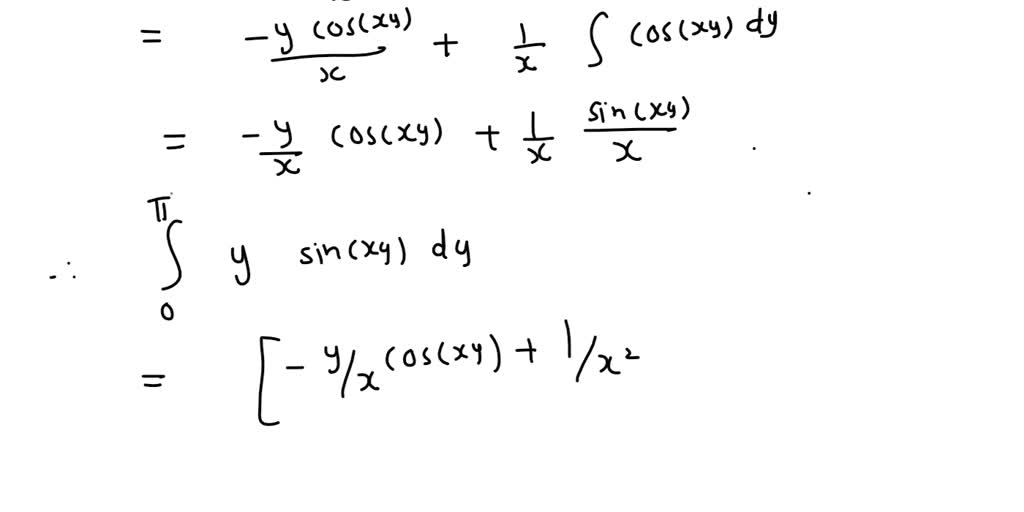 = -y cos(xy)/x + 1/x ∫ cos(xy) dy
= -y/x cos(xy) + 1/x sin(xy)/x
∴ ∫₀^π y sin(xy) dy
= [ - y/x cos(xy) + 1/x²